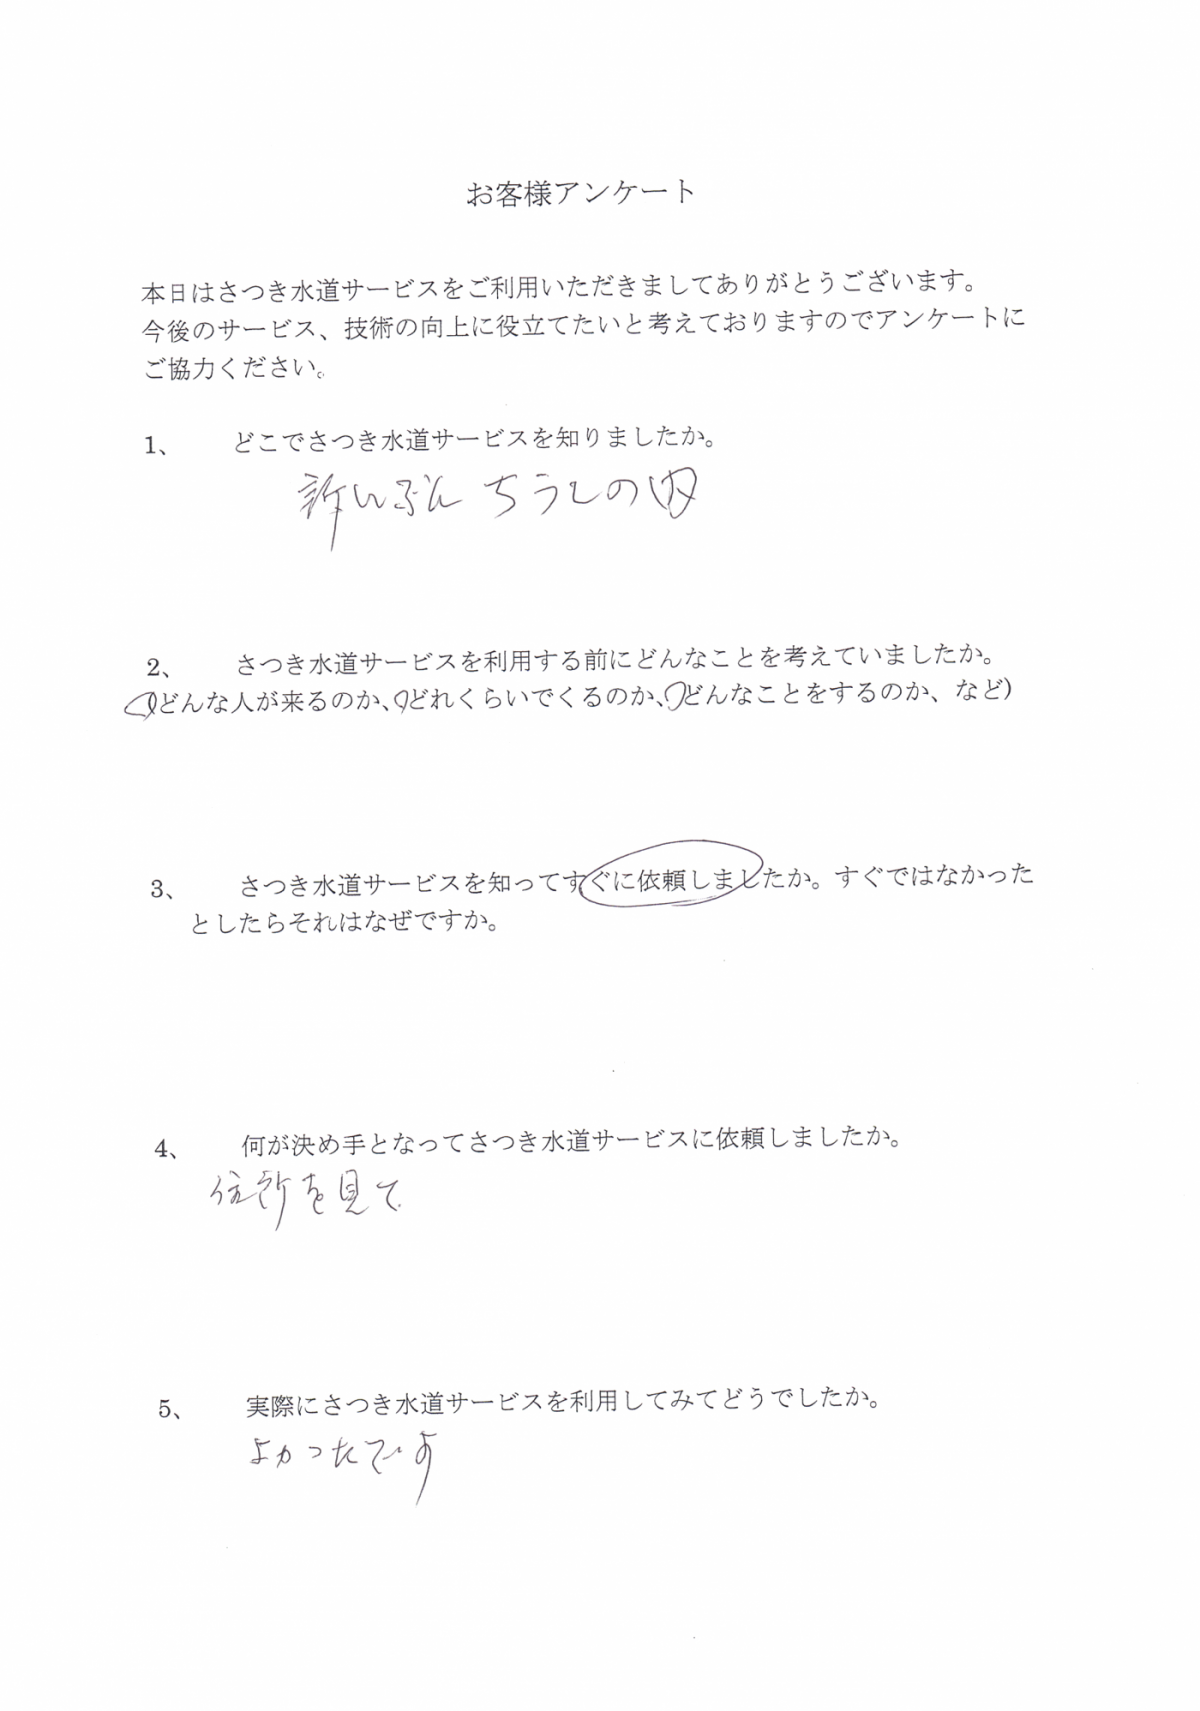 お客様アンケート
本日はさつき水道サービスをご利用いただきましてありがとうございます。
今後のサービス、技術の向上に役立てたいと考えておりますのでアンケートに
ご協力ください。
1、 どこでさつき水道サービスを知りましたか。
新しんぶん ちらしの内
2、 さつき水道サービスを利用する前にどんなことを考えていましたか。
(どんな人が来るのか、どれくらいでくるのか、どんなことをするのか、など)
3、 さつき水道サービスを知ってすぐに依頼しましたか。すぐではなかった
としたらそれはなぜですか。
4、 何が決め手となってさつき水道サービスに依頼しましたか。
住所を見て
5、 実際にさつき水道サービスを利用してみてどうでしたか。
よかったです